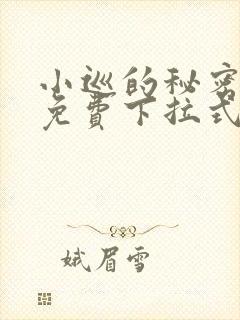 小巡的秘密
免費下拉式
娥眉雪